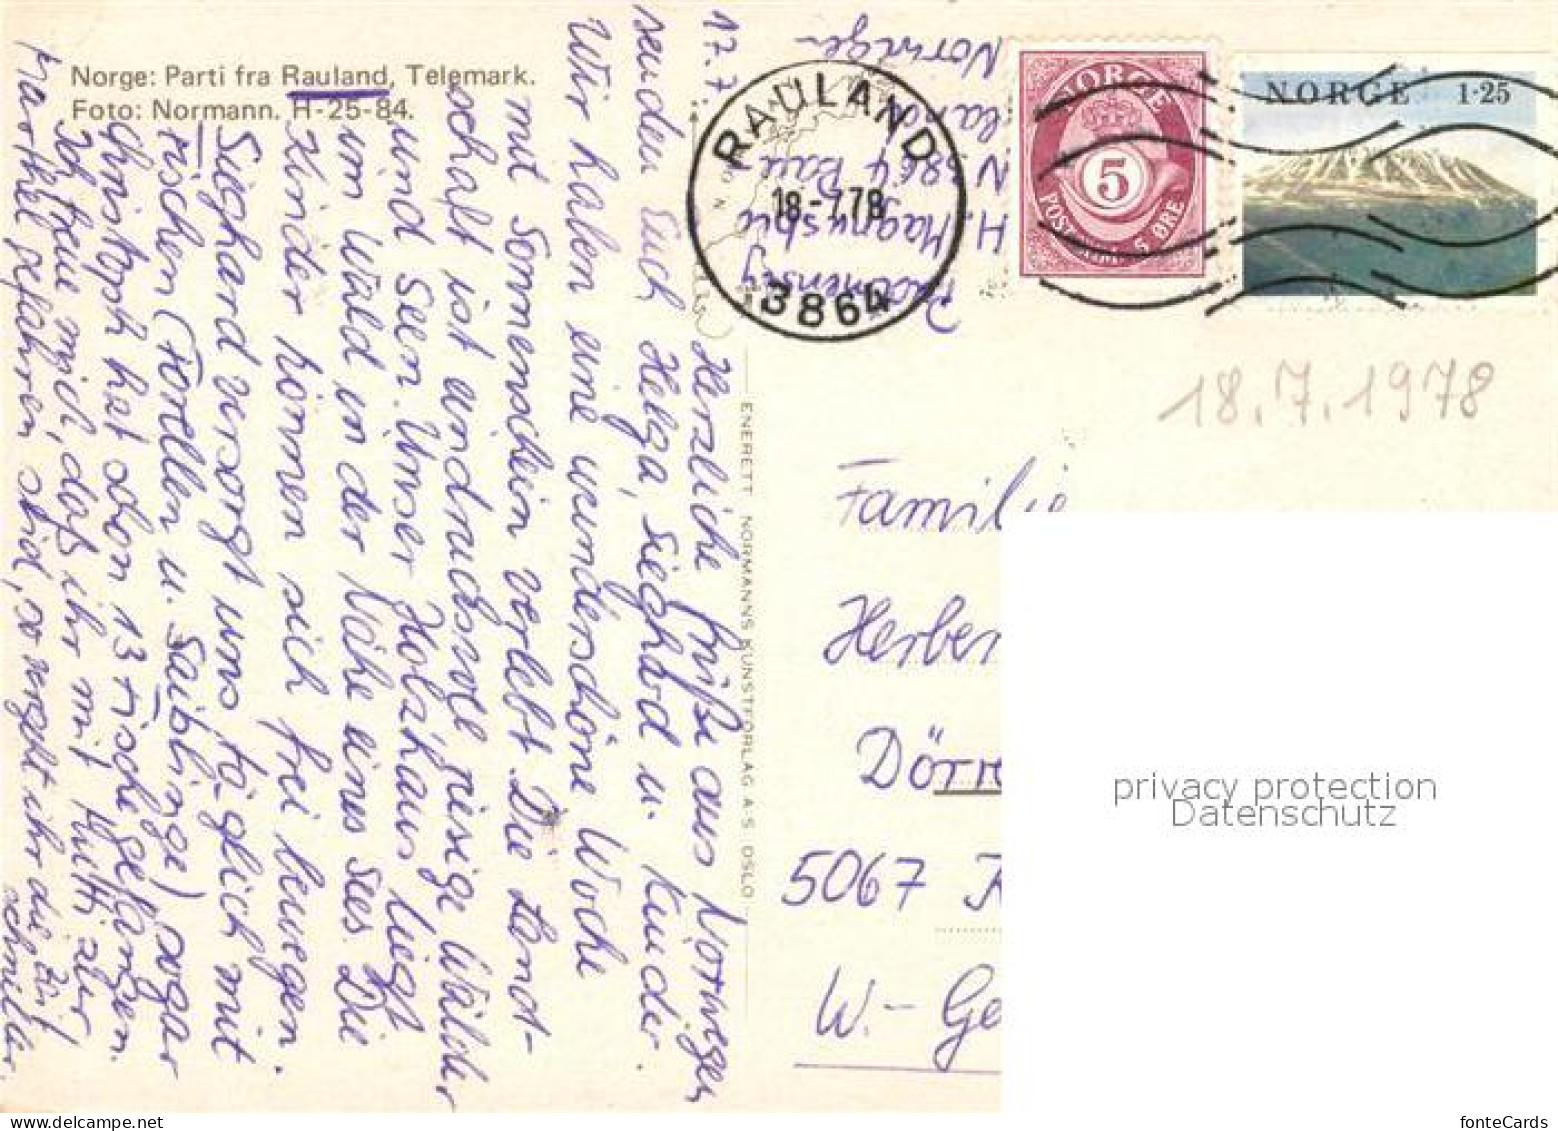 Norge: Parti fra Rauland, Telemark.
Foto: Normann. H-25-84.
17.7.
Herzliche Grüße aus Norwegen
senden Euch Helga, Sieghard u. Kinder.
Wir haben eine wunderschöne Woche
mit Sonnenschein verlebt. Die Land-
schaft ist eindrucksvoll riesige Wälder
und Seen. Unser Holzhaus liegt
im Wald in der Nähe eines Sees. Die
Kinder können sich frei bewegen.
Sieghard versorgt uns täglich mit
Fischen (Forellen u. Saiblinge) sogar
Christoph hat schon 13 Fische gefangen.
Ich freue mich, daß ihr mit Mutti zur
Markel gefahren seid, so vergeht ihr die Zeit
schneller.
ENERETT NORMANNS KUNSTFORLAG A-S OSLO
H. Magnushi
N 3864 Rauland
Norwegen
RAULAND
18-7.78
3864
NORGE
5
POSTFRIM. 5 ØRE
NORGE 1·25
18.7.1978
Familie
Herber
Dörr
5067 K
W.-Ge
privacy protection
Datenschutz
fonteCards